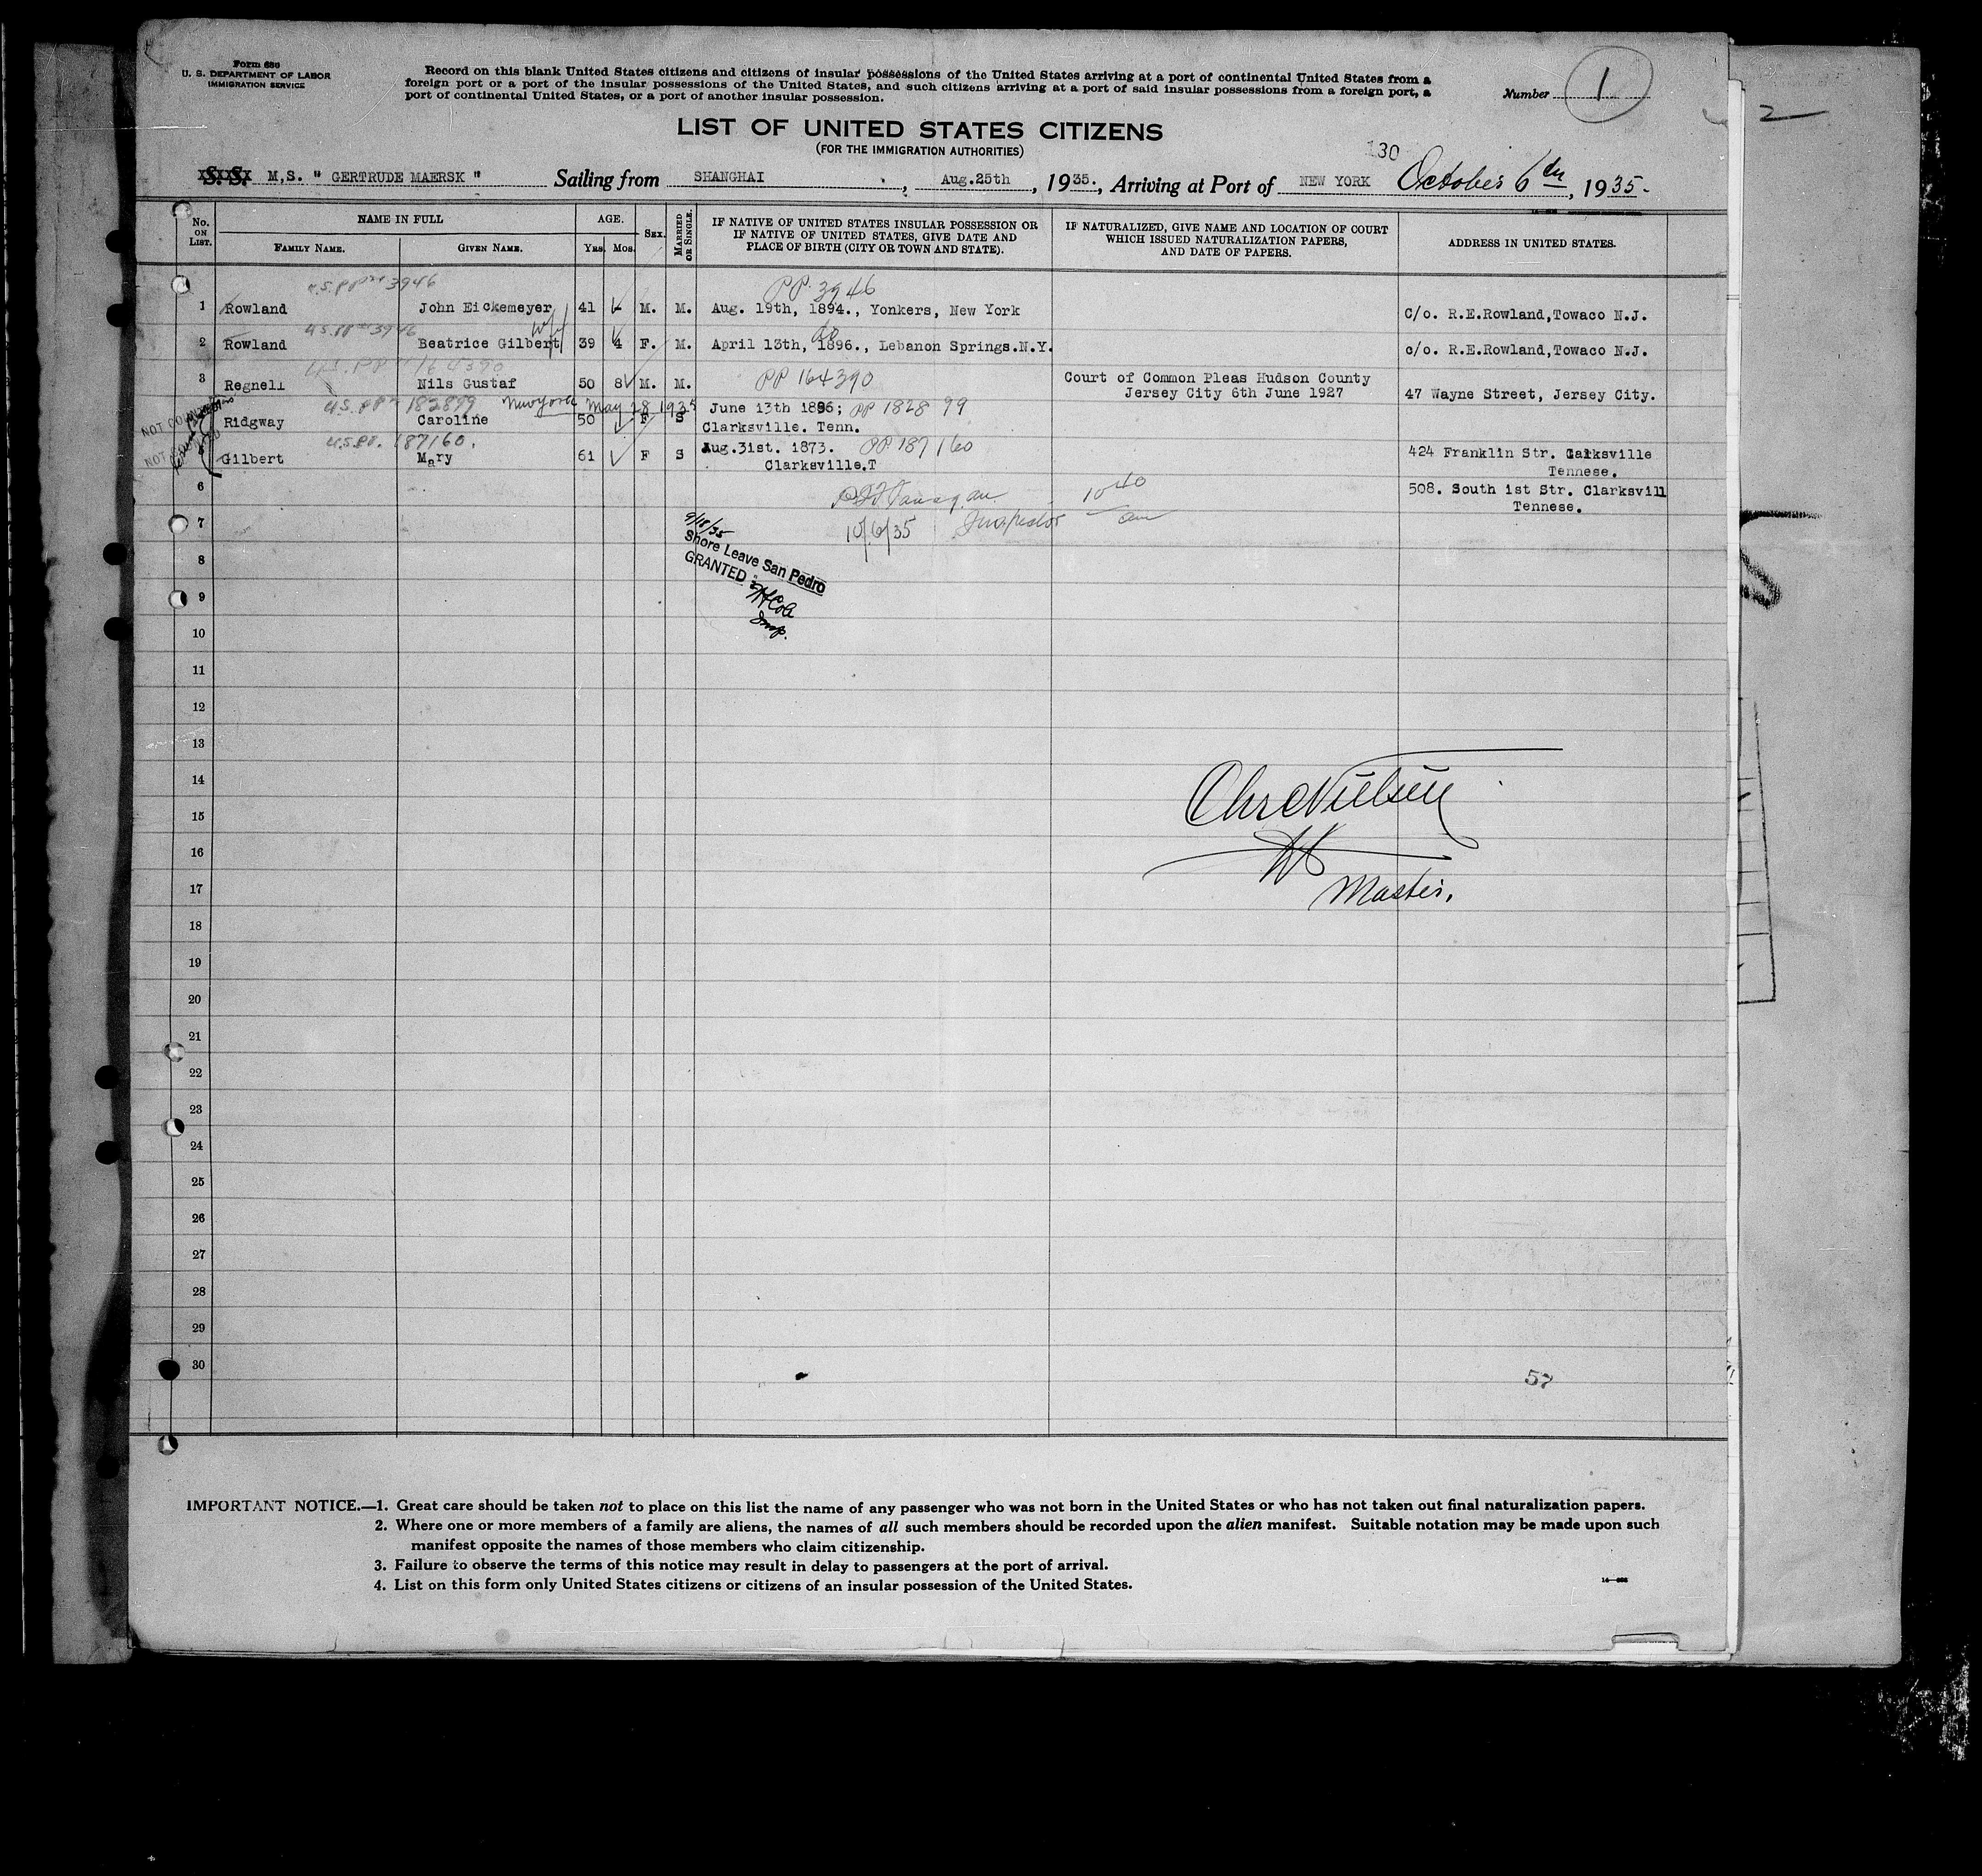 Form 680
U. S. DEPARTMENT OF LABOR
IMMIGRATION SERVICE
Record on this blank United States citizens and citizens of insular possessions of the United States arriving at a port of continental United States from a
foreign port or a port of the insular possessions of the United States, and such citizens arriving at a port of said insular possessions from a foreign port, a
port of continental United States, or a port of another insular possession.
Number 1
2
LIST OF UNITED STATES CITIZENS
(FOR THE IMMIGRATION AUTHORITIES)
130
S. S. M,S. " GERTRUDE MAERSK " Sailing from SHANGHAI, Aug.25th, 1935., Arriving at Port of NEW YORK October 6th, 1935.
No. ON LIST. NAME IN FULL AGE. SEX. MARRIED OR SINGLE. IF NATIVE OF UNITED STATES INSULAR POSSESSION OR IF NATIVE OF UNITED STATES, GIVE DATE AND PLACE OF BIRTH (CITY OR TOWN AND STATE). IF NATURALIZED, GIVE NAME AND LOCATION OF COURT WHICH ISSUED NATURALIZATION PAPERS, AND DATE OF PAPERS. ADDRESS IN UNITED STATES.
FAMILY NAME. GIVEN NAME. Yrs. Mos.
U.S. PP no 3946 PP. 3946
1 Rowland John Eickemeyer 41 M. M. Aug. 19th, 1894., Yonkers, New York C/o. R.E.Rowland,Towaco N.J.
U.S. PP no 3946 wife do
2 Rowland Beatrice Gilbert 39 4 F. M. April 13th, 1896., Lebanon Springs.N.Y. c/o. R.E.Rowland,Towaco N.J.
U.S. PP 164390
3 Regnell Nils Gustaf 50 8 M. M. PP 164390 Court of Common Pleas Hudson County
Jersey City 6th June 1927 47 Wayne Street, Jersey City.
U.S. PP 182899 New York May 28 1935
NOT
Ridgway Caroline 50 F S June 13th 1896; PP 182899
Clarksville. Tenn.
U.S. PP. 187160.
NOT
Gilbert Mary 61 F S Aug.31st. 1873. PP 187160
Clarksville.T
424 Franklin Str.
Tennese.
6 508. South 1st Str. Clarksvill
Tennese.
Inspector 10 40 am
7 10/6/35
9/18/35
Shore Leave San Pedro
GRANTED
Insp.
8
9
10
11
12
13
14
15
16
17
18
19
20
21
22
23
24
25
26
27
28
29
30
Chr Nielsen
Master.
57
IMPORTANT NOTICE.—1. Great care should be taken not to place on this list the name of any passenger who was not born in the United States or who has not taken out final naturalization papers.
2. Where one or more members of a family are aliens, the names of all such members should be recorded upon the alien manifest. Suitable notation may be made upon such
manifest opposite the names of those members who claim citizenship.
3. Failure to observe the terms of this notice may result in delay to passengers at the port of arrival.
4. List on this form only United States citizens or citizens of an insular possession of the United States.